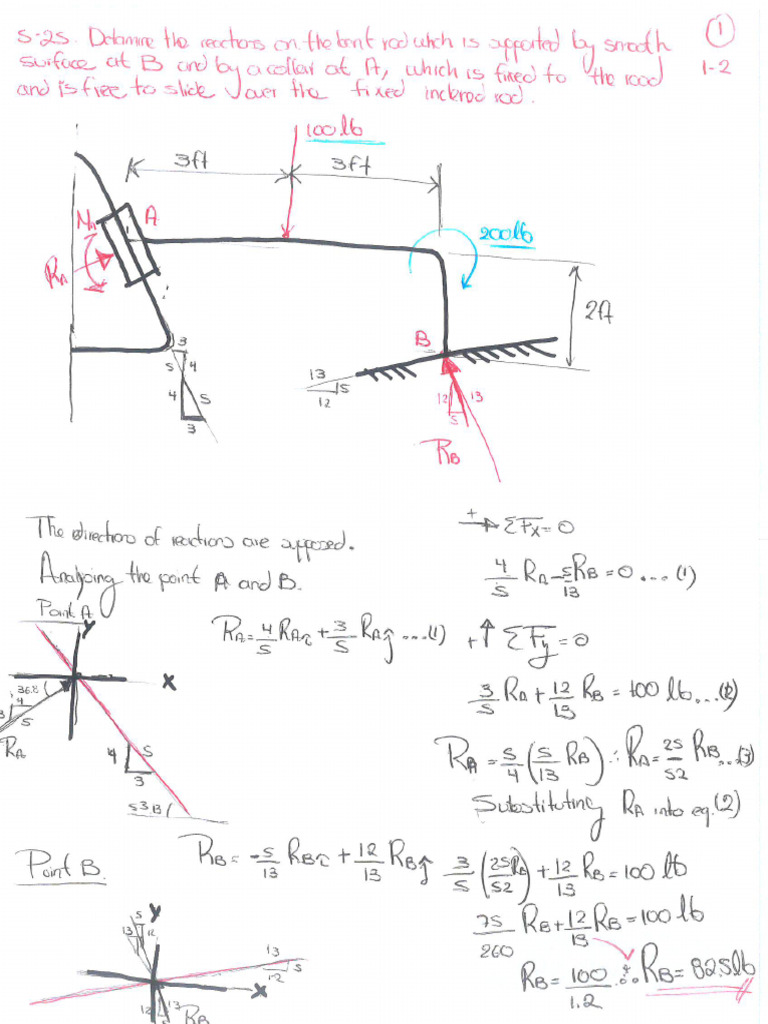 5-25. Determine the reactions on the bent rod which is supported by smooth
surface at B and by a collar at A, which is fixed to the road
and is free to slide over the fixed inclined rod.
1
1-2
100lb
3ft
3ft
MA
A
200lb
RA
2ft
B
3
5
4
4
5
3
13
5
12
12
13
5
RB
The directions of reactions are supposed.
Analyzing the point A and B.
Point A
y
x
36.8
4
3
5
RA
4
5
3
53.13
RA = 4/5 RA i + 3/5 RA j ...(1)
+→ ΣFx = 0
4/5 RA - 5/13 RB = 0 ...(1)
+↑ ΣFy = 0
3/5 RA + 12/13 RB = 100 lb ...(2)
RA = 5/4 (5/13 RB) ∴ RA = 25/52 RB ...(3)
Substituting RA into eq. (2)
Point B.
RB = -5/13 RB i + 12/13 RB j
3/5 (25/52 RB) + 12/13 RB = 100 lb
75/260 RB + 12/13 RB = 100 lb
RB = 100/1.2 ∴ RB = 82.5 lb
5
y
13
12
13
5
12
x
12
13
RB